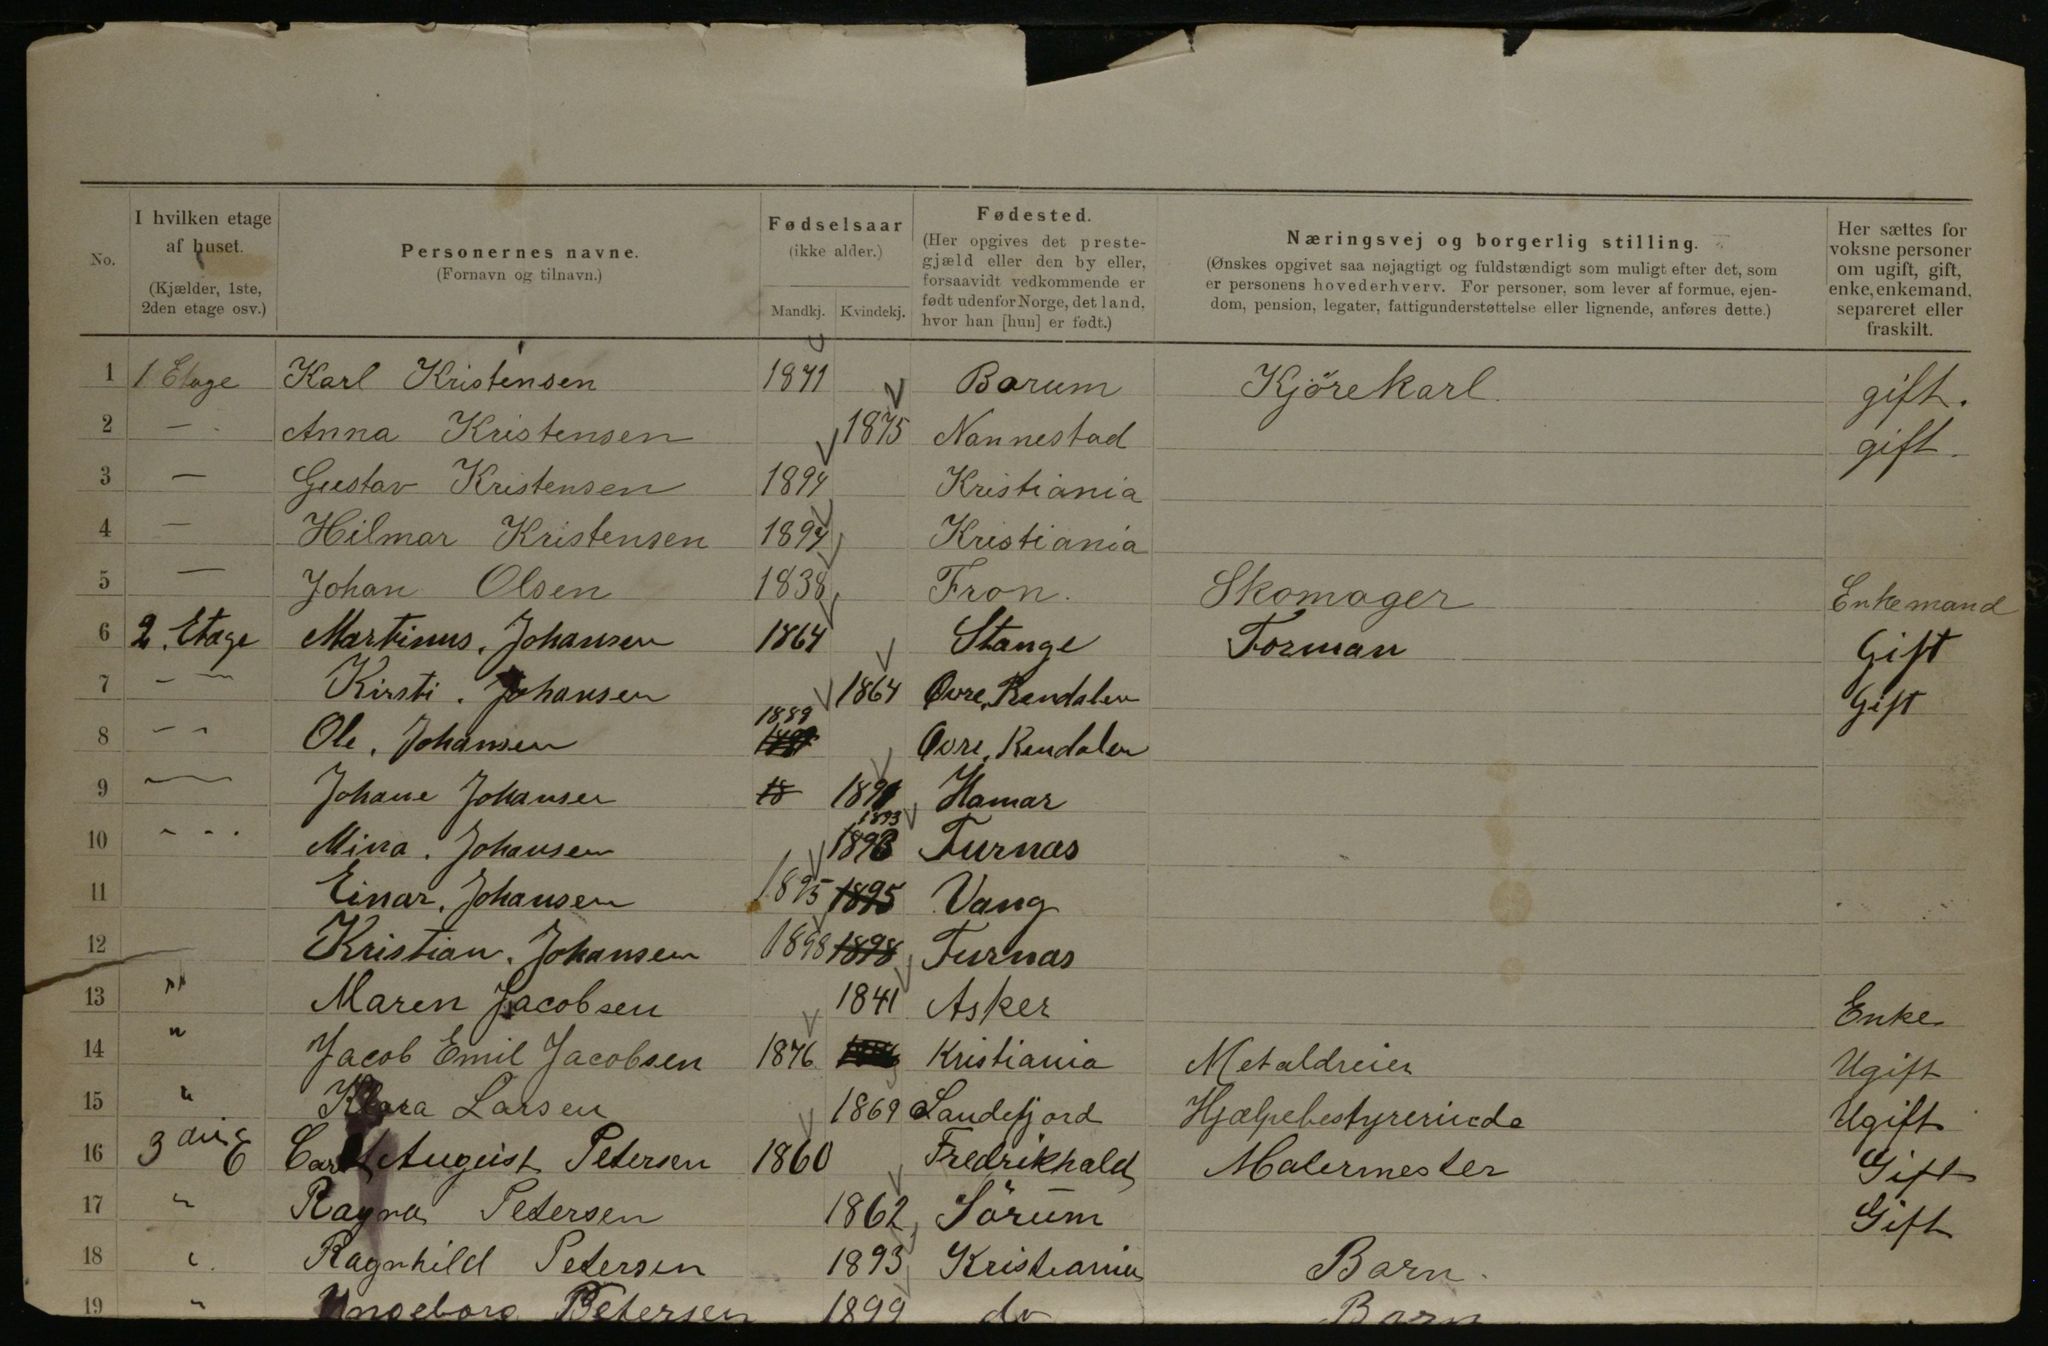 No.
I hvilken etage af huset. (Kjælder, 1ste, 2den etage osv.)
Personernes navne. (Fornavn og tilnavn.)
Fødselsaar (ikke alder.) Mandkj. Kvindekj.
Fødested. (Her opgives det prestegjæld eller den by eller, forsaavidt vedkommende er født udenfor Norge, det land, hvor han [hun] er født.)
Næringsvej og borgerlig stilling. (Ønskes opgivet saa nøjagtigt og fuldstændigt som muligt efter det, som er personens hovederhverv. For personer, som lever af formue, ejendom, pension, legater, fattigunderstøttelse eller lignende, anføres dette.)
Her sættes for voksne personer om ugift, gift, enke, enkemand, separeret eller fraskilt.
1 1 Etage Karl Kristensen 1871 Barum Kjörekarl gift.
2 — Anna Kristensen 1875 Nannestad gift.
3 — Gustav Kristensen 1894 Kristiania
4 — Hilmar Kristensen 1897 Kristiania
5 — Johan Olsen 1838 Fron. Skomager Enkemand
6 2. Etage Martinus. Johansen 1864 Stange Forman Gift
7 — — Kirsti. Johansen 1864 Øvre, Rendalen Gift
8 — — Ole. Johansen 1889 Øvre. Rendalen
9 — Johane Johansen 18 1891 Hamar
10 - - - Mina. Johansen 1893 1893 Furnas
11 Einar. Johansen 1895 1895 Vang
12 Kristian. Johansen 1898 1898 Furnas
13 " Maren Jacobsen 1841 Asker Enke
14 " Jacob Emil Jacobsen 1876 Kristiania Metaldreier Ugift
15 " Klara Larsen 1869 Sandefjord Hjælpebestyrerinde Ugift
16 3 die E Carl August Petersen 1860 Fredrikhald Malermester Gift
17 " Ragna Petersen 1862 Sörum Gift
18 " Ragnhild Petersen 1893 Kristiania Barn.
19 " Ingeborg Petersen 1899 do Barn